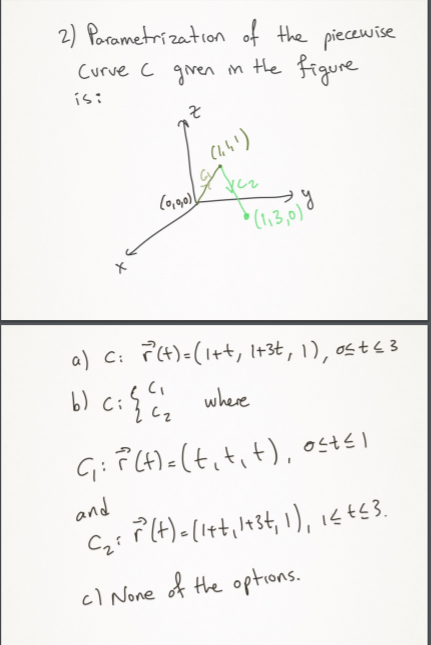 2) Parametrization of the piecewise
Curve C given in the figure
is:
z
(1,1,1)
C1
C2
(0,0,0)
y
(1,3,0)
x
a) C: r⃗(t)=(1+t, 1+3t, 1), 0≤t≤3
b) C: { C1 where
C2
C1: r⃗(t)=(t,t,t), 0≤t≤1
and
C2: r⃗(t)=(1+t,1+3t,1), 1≤t≤3.
c) None of the options.